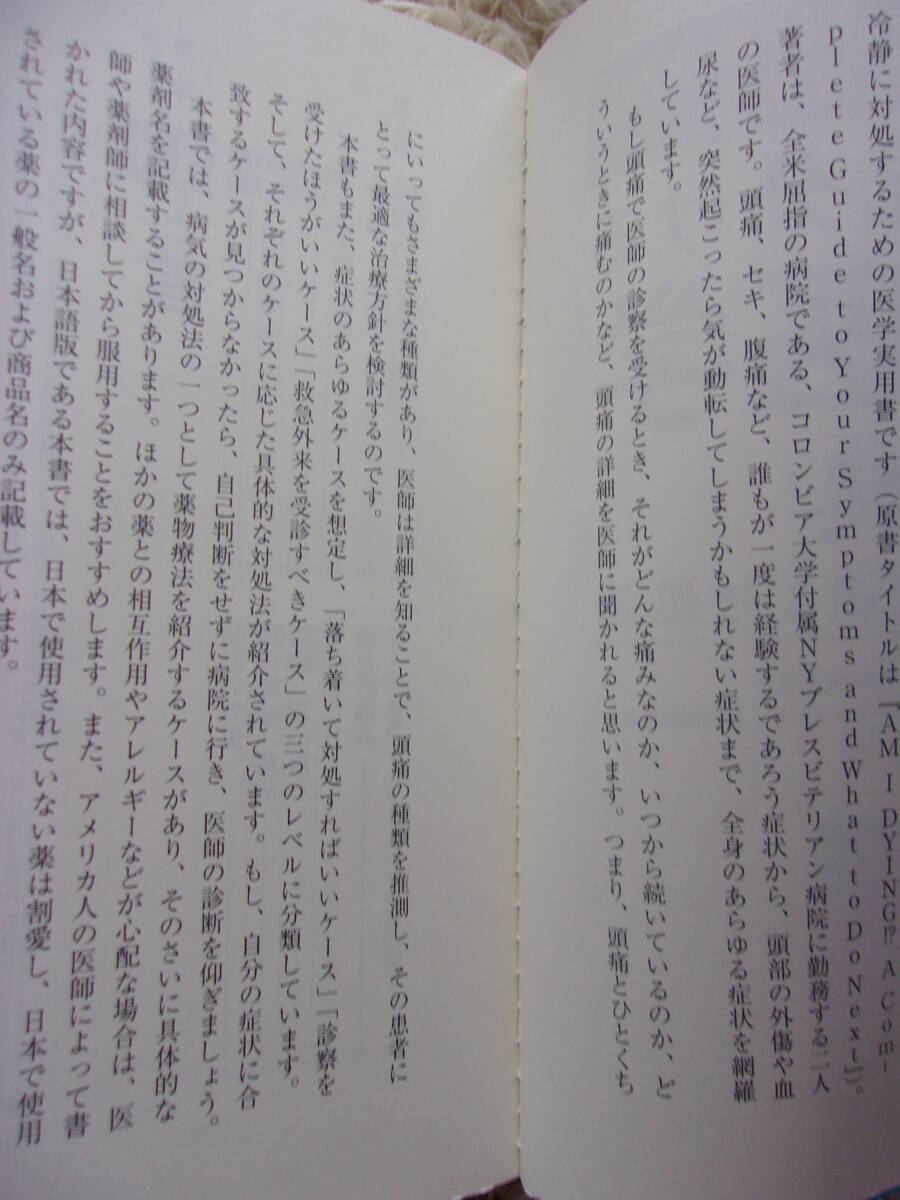 冷静に対処するための医学実用書です（原書タイトルは『AM I DYING!? A Com-
plete Guide to Your Symptoms and What to Do Next』）。
著者は、全米屈指の病院である、コロンビア大学付属NYプレスビテリアン病院に勤務する二人
の医師です。頭痛、セキ、腹痛など、誰もが一度は経験するであろう症状から、頭部の外傷や血
尿など、突然起こったら気が動転してしまうかもしれない症状まで、全身のあらゆる症状を網羅
しています。
もし頭痛で医師の診察を受けるとき、それがどんな痛みなのか、いつから続いているのか、ど
ういうときに痛むのかなど、頭痛の詳細を医師に聞かれると思います。つまり、頭痛とひとくち
にいってもさまざまな種類があり、医師は詳細を知ることで、頭痛の種類を推測し、その患者に
とって最適な治療方針を検討するのです。
本書もまた、症状のあらゆるケースを想定し、「落ち着いて対処すればいいケース」「診察を
受けたほうがいいケース」「救急外来を受診すべきケース」の三つのレベルに分類しています。
そして、それぞれのケースに応じた具体的な対処法が紹介されています。もし、自分の症状に合
致するケースが見つからなかったら、自己判断をせずに病院に行き、医師の診断を仰ぎましょう。
本書では、病気の対処法の一つとして薬物療法を紹介するケースがあり、そのさいに具体的な
薬剤名を記載することがあります。ほかの薬との相互作用やアレルギーなどが心配な場合は、医
師や薬剤師に相談してから服用することをおすすめします。また、アメリカ人の医師によって書
かれた内容ですが、日本語版である本書では、日本で使用されていない薬は割愛し、日本で使用
されている薬の一般名および商品名のみ記載しています。